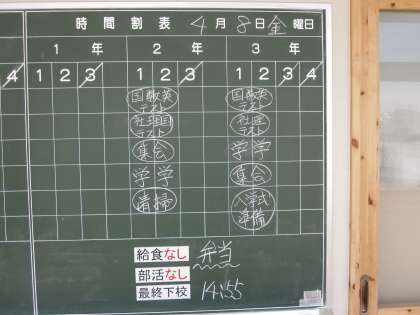 時間割表 4月8日金曜日
1年 2年 3年
4 1 2 3 1 2 3 1 2 3 4
国数英 国数英
テスト テスト
社理国 社理
テスト テスト
集会 学学
学学 集会
清掃 入学式
準備
給食なし 弁当
部活なし
最終下校 14:55